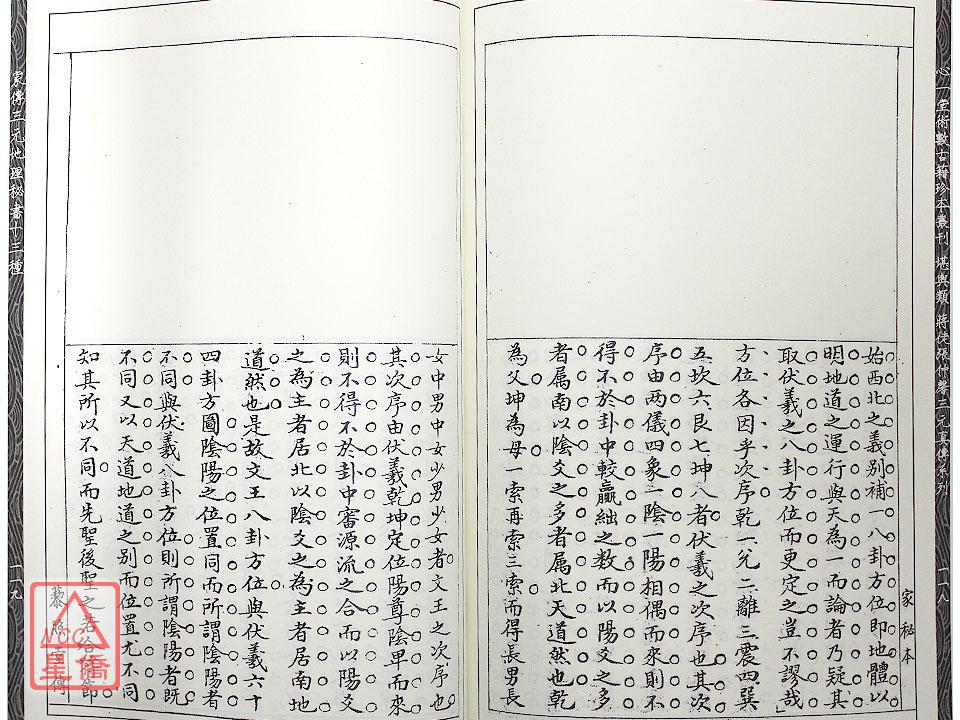 心一堂術數古籍珍本叢刊 堪輿類 蔣徒張仲馨三元真傳系列
一一八
家秘本
始西北之義別補一八卦方位即地體以
明地道之運行與天為一而論者乃疑其
取伏羲之八卦方位而更定之豈不謬哉
方位各因乎次序乾一兌二離三震四巽
五坎六艮七坤八者伏羲之次序也其次
序由兩儀四象一陰一陽相偶而來則不
得不於卦中較贏絀之數而以陽爻之多
者属南以陰爻之多者属北天道然也乾
為父坤為母一索再索三索而得長男長
女中男中女少男少女者文王之次序也
其次序由伏羲乾坤定位陽尊陰卑而來
則不得不於卦中審源流之合而以陽爻
之為主者居北以陰爻之為主者居南地
道然也是故文王八卦方位與伏羲六十
四卦方圖陰陽之位置同而所謂陰陽者
不同與伏羲八卦方位則所謂陰陽者既
不同又以天道地道之別而位置尤不同
知其所以不同而先聖後聖之若合符節
藜照堂傳
家傳三元地理秘書十三種
一一九
VCC
星僑